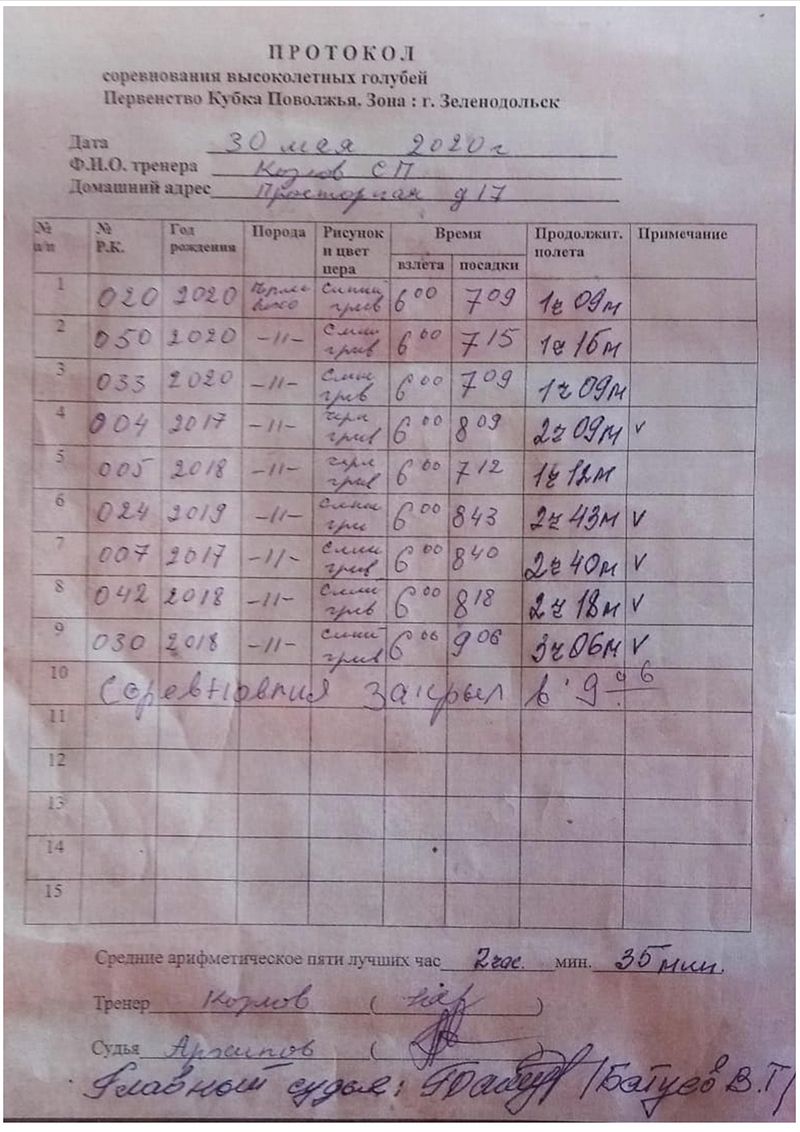 ПРОТОКОЛ
соревнования высоколетных голубей
Первенство Кубка Поволжья. Зона : г. Зеленодольск
Дата 30 мая 2020 г
Ф.И.О. тренера Козлов СП
Домашний адрес Просторная д 17
№ п/п № Р.К. Год рождения Порода Рисунок и цвет пера Время взлёта посадки Продолжит. полета Примечание
1 020 2020 Синий грив 6 00 7 09 1ч 09м
2 050 2020 -//- Сини грив 6 00 7 15 1ч 15м
3 033 2020 -//- Сини грив 6 00 7 09 1ч 09м
4 004 2017 -//- черн грив 6 00 8 09 2ч 09м v
5 005 2018 -//- черн грив 6 00 7 12 1ч 12м
6 024 2019 -//- Синий гри 6 00 8 43 2ч 43м v
7 007 2017 -//- Сини грив 6 00 8 40 2ч 40м v
8 042 2018 -//- Сини грив 6 00 8 18 2ч 18м v
9 030 2018 -//- Синий грив 6 00 9 06 3ч 06м v
10 Соревновния закрыл в 9 06
11
12
13
14
15
Средние арифметическое пяти лучших час 2 час. мин. 35 мин.
Тренер Козлов ( )
Судья Архипов ( )
Главный судья: /Батуев В.Т/